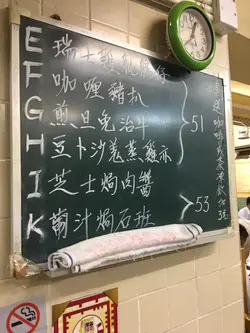 E 瑞士雞扒腸仔
F 咖喱豬扒
G 煎旦免治牛
H 豆卜沙羗蒸雞亦
I 芝士焗肉醬
K 葡汁焗石班
51
53